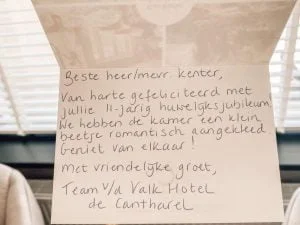 Beste heer/mevr. Kenter,
Van harte gefeliciteerd met
jullie 11-jarig huwelijksjubileum,
We hebben de kamer een klein
beetje romantisch aangekleed.
Geniet van elkaar!
Met vriendelijke groet,
Team v/d Valk Hotel
de Cantharel